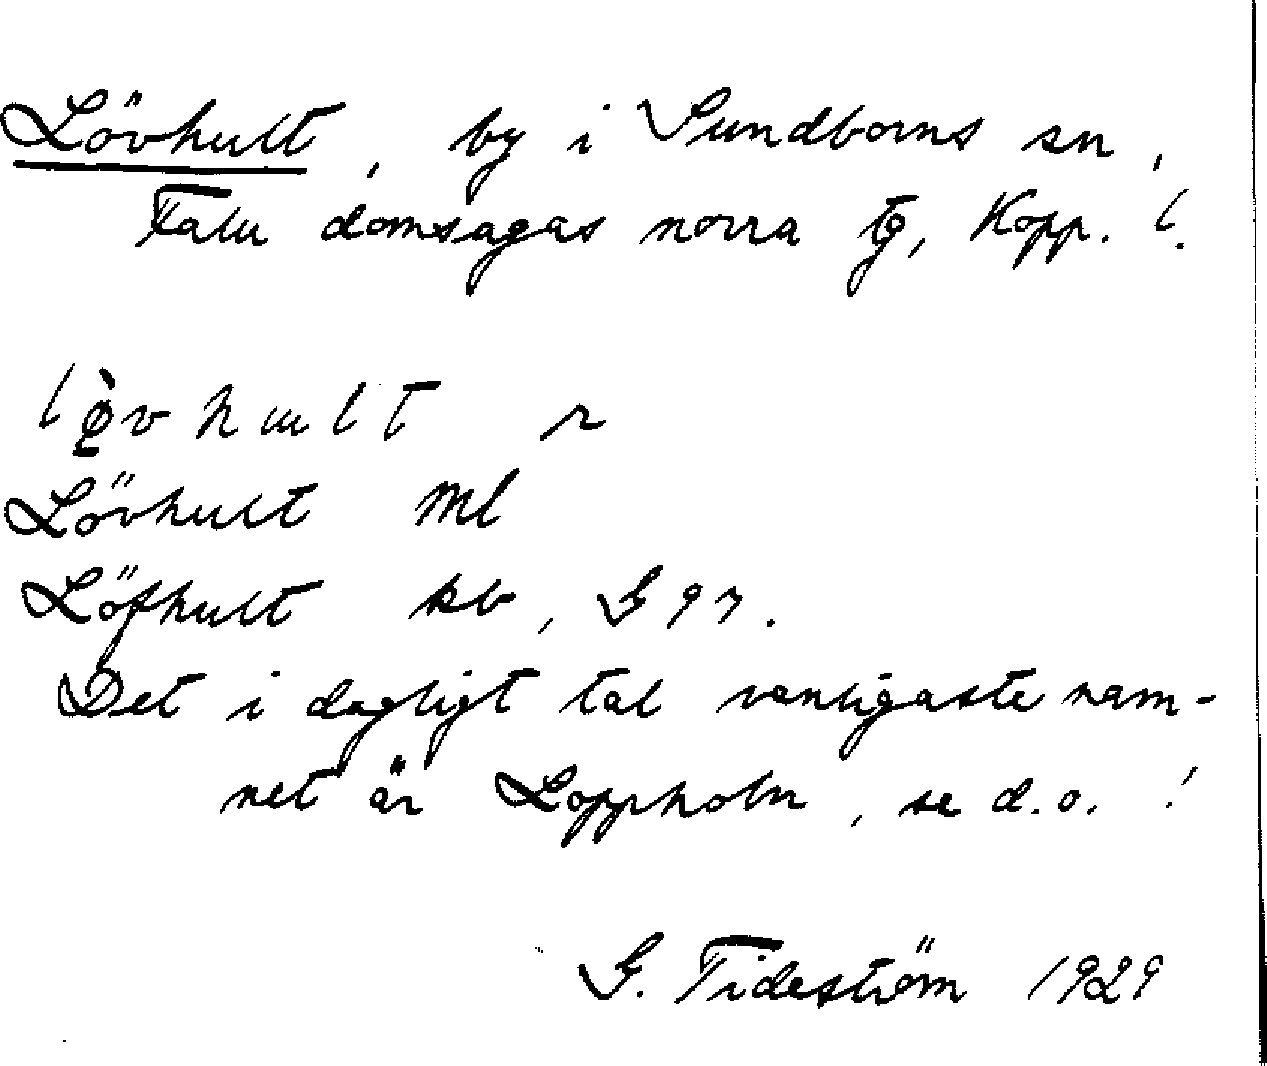 Lövhult, by i Sundborns sn,
Falu domsagas norra tg, Kopp. l.
lø̀vhult r
Lövhult Ml
Löfhult kb, G 97.
Det i dagligt tal vanligaste nam-
net är Loppholn, se d.o. !
G. Tideström 1929